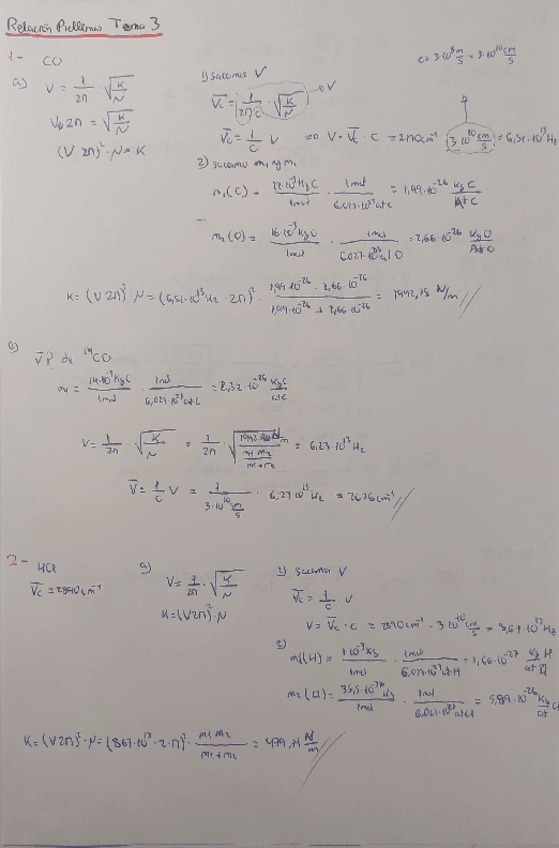 Relación Problemas Tema 3
1- CO
c = 3·10⁸ m/s = 3·10¹⁰ cm/s
a) V = 1/2π · √(K/N)
V · 2π = √(K/N)
(V 2π)² · N = K
1) sacamos V
V̄c = 1/2πc · √(K/N) → V
V̄c = 1/c V ⇒ V = V̄c · C = 2170 cm⁻¹ · 3·10¹⁰ cm/s = 6,51·10¹³ Hz
2) sacamos m₁ y m₂
m₁(C) = 12·10⁻³ Kg C / 1mol · 1mol / 6,023·10²³ at C = 1,99·10⁻²⁶ Kg C / At C
m₂(O) = 16·10⁻³ Kg O / 1mol · 1mol / 6,023·10²³ at O = 2,66·10⁻²⁶ Kg O / At O
K = (V 2π)² · N = (6,51·10¹³ Hz · 2π)² · 1,99·10⁻²⁶ · 2,66·10⁻²⁶ / 1,99·10⁻²⁶ + 2,66·10⁻²⁶ = 1942,18 N/m
V̄ de ¹⁴CO
m₁ = 14·10⁻³ Kg C / 1mol · 1mol / 6,023·10²³ at C = 2,32·10⁻²⁶ Kg C / at C
V = 1/2π · √(K/N) = 1/2π · √( N/m / (m₁ m₂ / m₁ + m₂)) = 6,23·10¹³ Hz
V̄ = 1/c V = 1 / 3·10¹⁰ cm/s · Hz = 2076 cm⁻¹
2- HCl
V̄c = 2890 cm⁻¹
a) V = 1/2π · √(K/N)
K = (V 2π)² · N
1) sacamos V
V̄c = 1/c V
V = V̄c · C = 2890 cm⁻¹ · 3·10¹⁰ cm/s = 8,67·10¹³ Hz
2) m₁(H) = 1·10⁻³ Kg / 1mol · 1mol / 6,023·10²³ at H = 1,66·10⁻²⁷ Kg H / at H
m₂(Cl) = 35,5·10⁻³ Kg / 1mol · 1mol / 6,023·10²³ at Cl = 5,89·10⁻²⁶ Kg Cl / at Cl
K = (V 2π)² · N = (8,67·10¹³ · 2·π)² · m₁ m₂ / m₁ + m₂ = N/m